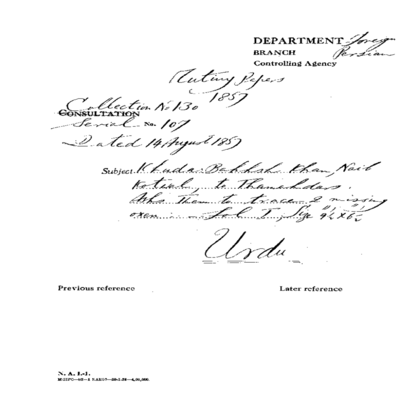 DEPARTMENT Foreign
BRANCH Persian
Controlling Agency
Mutiny Papers
1857
Collection No 130
CONSULTATION
Serial No. 107
Dated 14 August 1857
Subject Khuda Bakhsh Khan, Naib
Kotwal, to Thanahdars.
Asks them to trace 2 missing
oxen Fol I, Size
Urdu
Previous reference Later reference
N. A. I.-I.